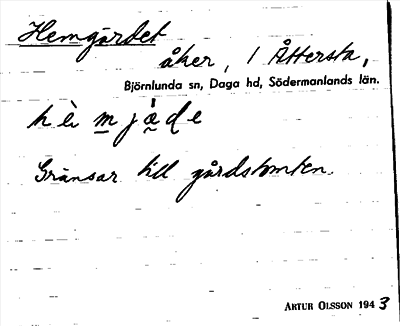 Hemgärdet
åker, 1 Åttersta,
Björnlunda sn, Daga hd, Södermanlands län.
hè m jȧ de
Gränsar till gårdstomten.
ARTUR OLSSON 1943